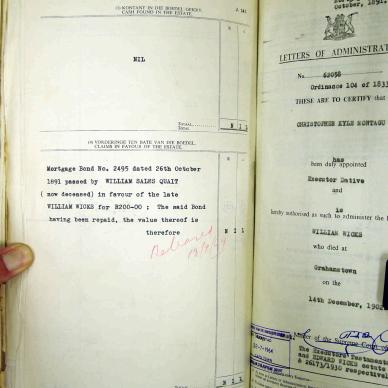 (3) KONTANT IN DIE BOEDEL GEKRY.
CASH FOUND IN THE ESTATE.
J. 243
R C
NIL
Totaal
Total
N I L
(4) VORDERINGS TEN BATE VAN DIE BOEDEL.
CLAIMS IN FAVOUR OF THE ESTATE.
R C
Mortgage Bond No. 2495 dated 26th October
1891 passed by WILLIAM SALES QUAIT
( now deceased) in favour of the late
WILLIAM WICKS for R200-00 : The said Bond
having been repaid, the value thereof is
therefore
N I L
N I L
October, 1891.
LETTERS OF ADMINISTRA
No. 62058
Ordinance 104 of 1833
THESE ARE TO CERTIFY that
CHRISTOPHER KYLE MONTAGU
has
been duly appointed
Executor Dative
and
is
hereby authorised as such to administer the
WILLIAM WICKS
who died at
Grahamstown
on the
14th December, 1902
Master of the Supreme Court
The Executors Testament
and EDWARD WICKS
& 26173/1930 respectively